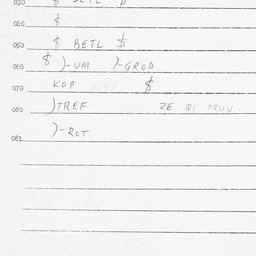 030 $ BETL $
040 $
050 $ BETL $
060 $ )-UM )-GROD
070 KOP $
080 )TREF ZE QI PRUV
081 )-ROT